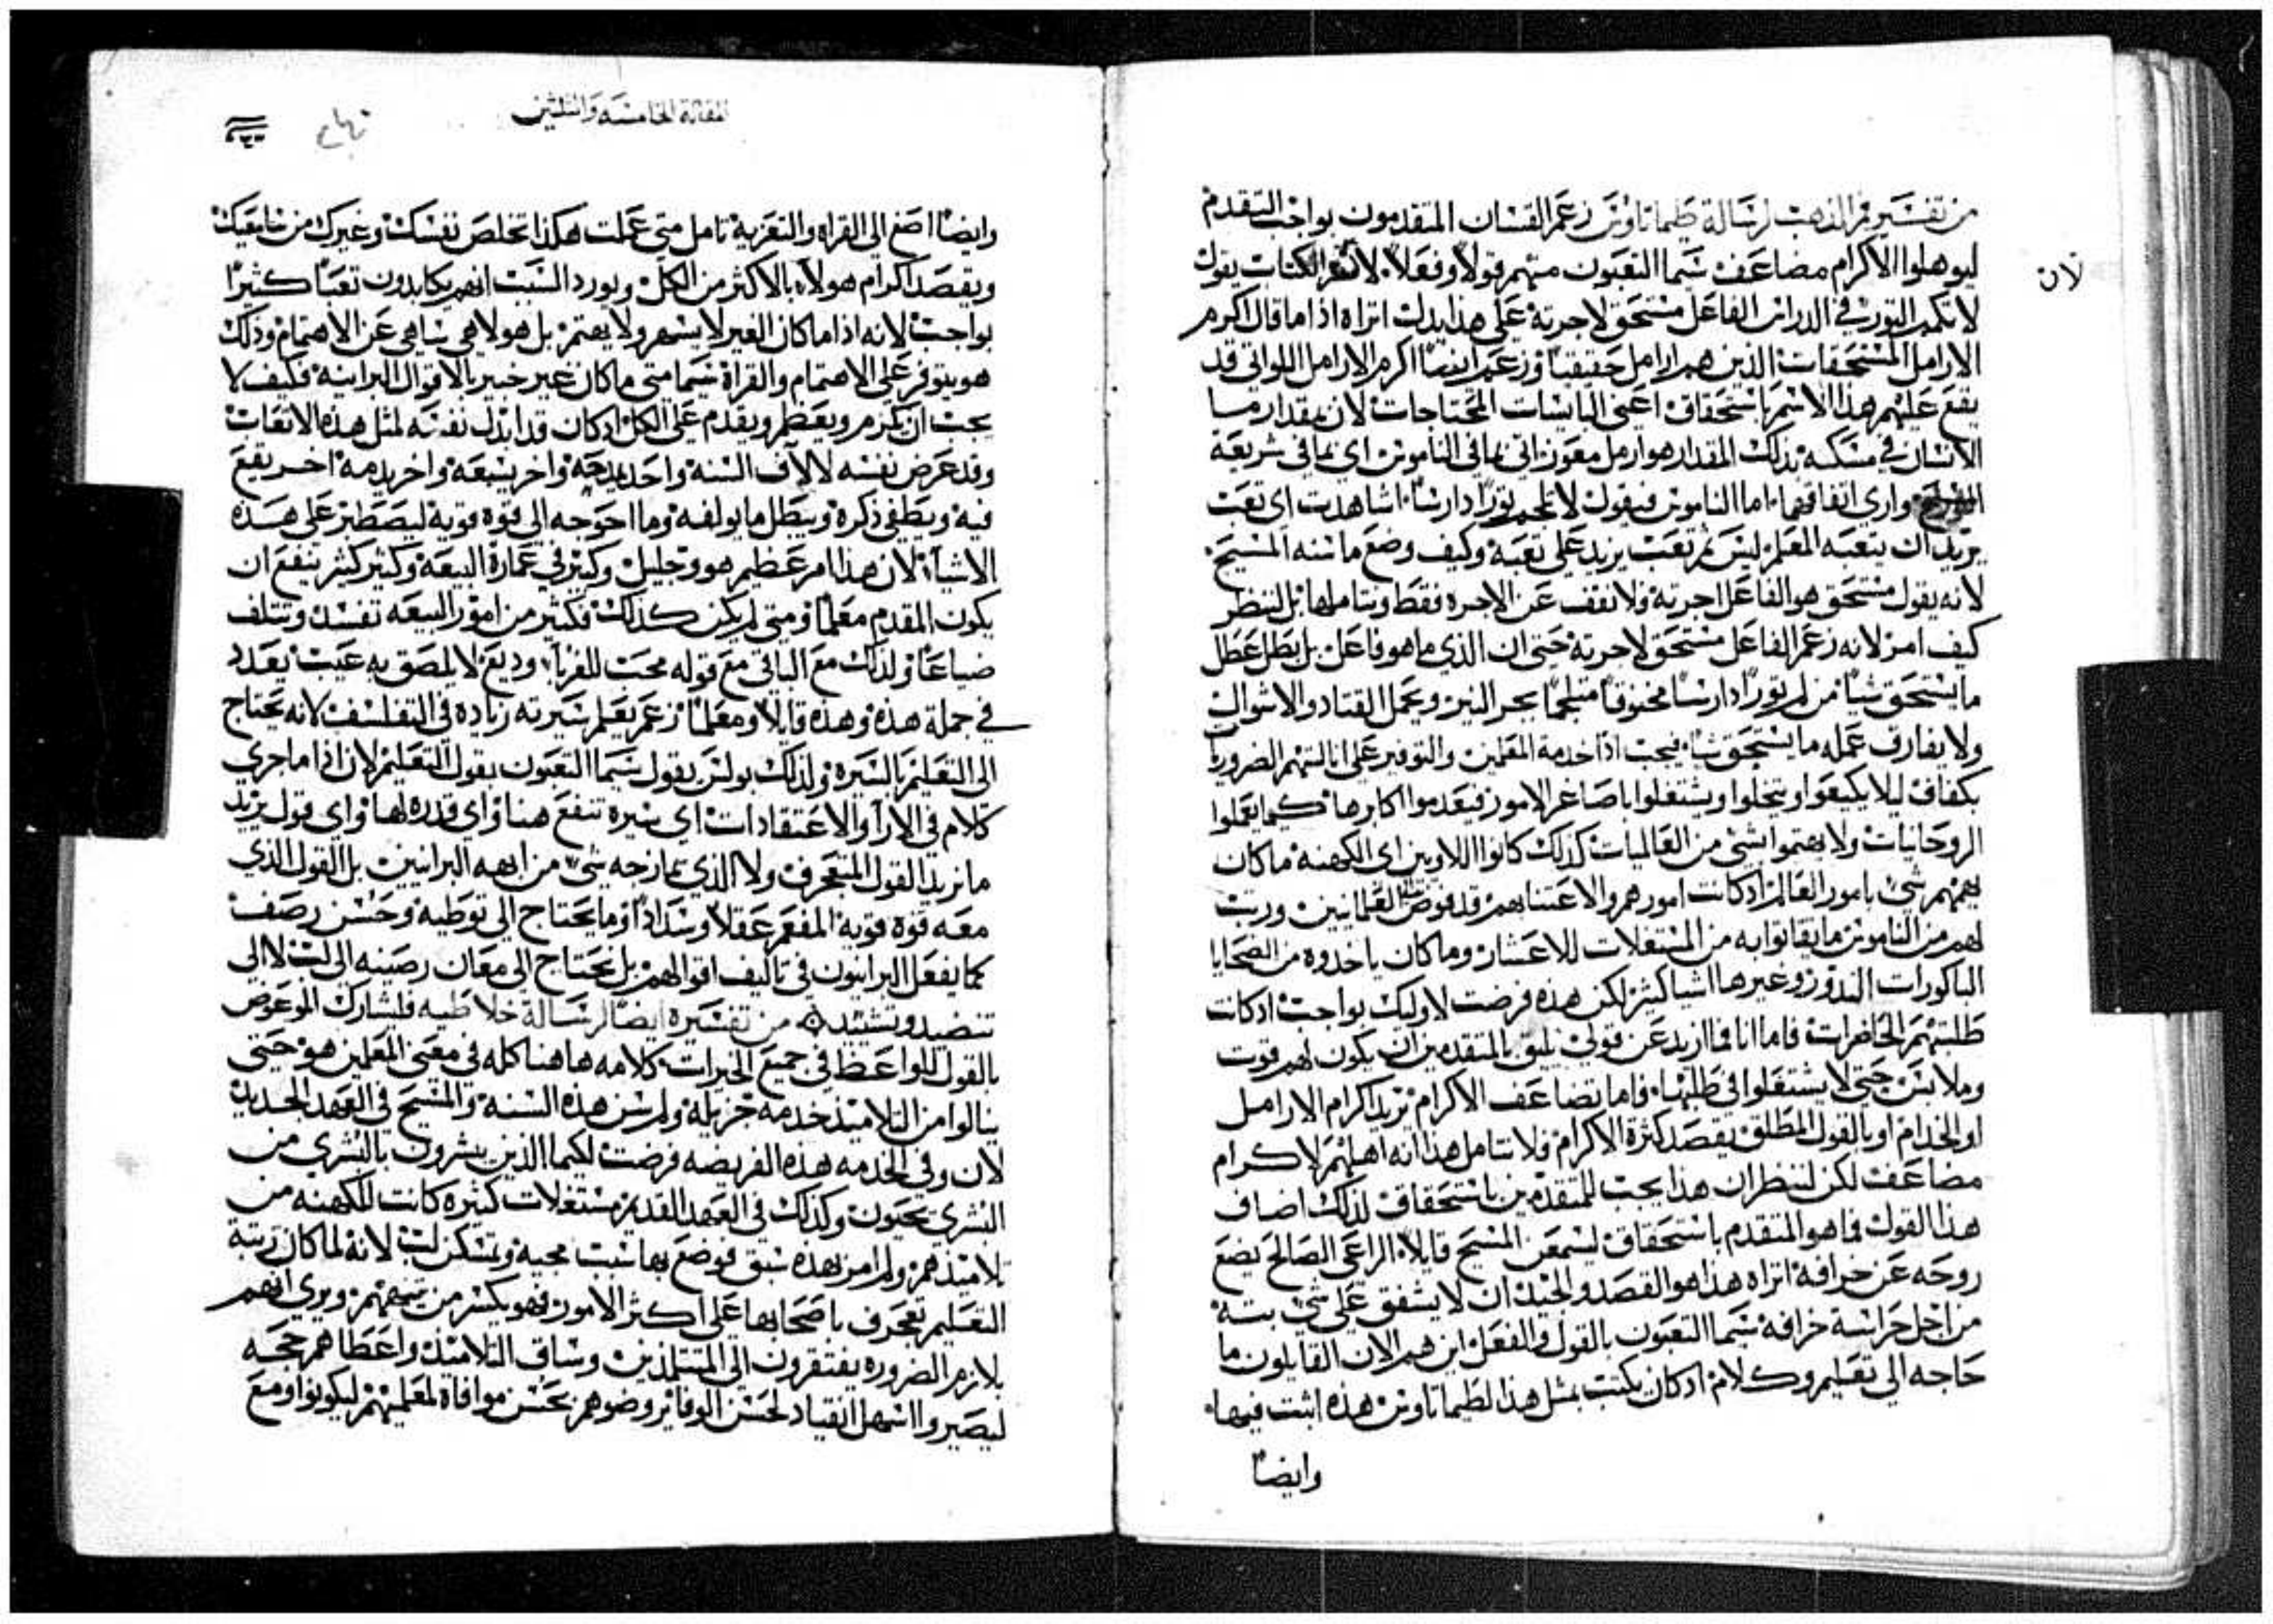 من تفسير فم الذهب لرسالة طيماتاوس زعم القسان المتقدمون بواجب التقدم
ليوهلوا الاكرام مضاعف سيما التعبون منهم قولا وفعلا لان الكتاب يقول
لان
لا تكمم الثور في الدراس الفاعل مستحق لاجرته على هذا يدل اتراه اذا ما قال اكرم
الارامل المستحقات الذين هم ارامل حقيقيا وزعم ايضا اكرم الارامل اللواتي قد
يقع عليهم هذا الاسم باستحقاق اعني البايسات المحتاجات لان بمقدار ما
الانسان في مسكنه بذلك المقدار هو ارمل معوز اتى بما في الناموس اي بما في شريعة
واري اتفاقهما اما الناموس فيقول لا تكمم ثورا دارسا اشاهدت اي تعب
يريد ان يتعبه المعلم ليس ثم تعب يزيد على تعبه وكيف وضع ما سنه المسيح
لانه يقول مستحق هو الفاعل اجرته ولا نقف عن الاجره فقط ونتاملها بل لننظر
كيف امر لانه زعم الفاعل مستحق لاجرته حتى ان الذي ما هو فاعل بل بطل عطل
ما يستحق شيا من لم ثورا دارسا مخنوقا متلجما يجر النير ويحمل القتاد والاشواك
ولا يفارق عمله ما يستحق شيا فيجب اذا خدمة المعلمين والتوفير على انالتهم الضروريا
بكفاف ليلا يكيعوا وينحلوا ويشتغلوا باصاغر الامور فيعدموا اكابرها كيما يعملوا
الروحانيات ولا يهتموا بشي من العالميات كذلك كانوا اللاويين اي الكهنه ما كان
يهمهم شي بامور العالم اذ كانت امورهم والاعتنا بهم قد فوض الى العلمانيين ورتب
لهم من الناموس ما يقاتوا به من المستغلات للاعشار وما كان ياخذوه من الضحايا
الباكورات النذور وغيرها اشيا كثير لكن هذه فرضت لاوليك بواجب اذ كانت
طلبتهم الحاضرات فاما انا فما ازيد عن قولي يليق بالمتقدمين ان يكون لهم قوت
وملابس حتى لا يشتغلوا في طلبها فاما تضاعف الاكرام يريد اكرام الارامل
او الخدام او بالقول المطلق يقصد كثرة الاكرام فلا نتامل هذا انه اهلهم لاكرام
مضاعف لكن لننظر ان هذا يجب للمتقدمين باستحقاق لذلك اضاف
هذا القول فما هو المتقدم باستحقاق ليسمعن المسيح قايلا الراعي الصالح يضع
روحه عن خرافه اتراه هذا هو القصد والجيد ان لا يشفق على شي بته
من اجل حراسة خرافه سيما التعبون بالقول والفعل اين هم الان القايلون ما
حاجه الى تعليم وكلام اذ كان يكتب بمثل هذا لطيماتاوس هذه اثبت فيها
وايضا
المقالة الخامسه والثلثين
وايضا اصغ الى القراه والتعزيه تامل متى عملت هكذا تخلص نفسك وغيرك من سامعيك
ويقصد اكرام هولاء بالاكثر من الكل ويورد السبب انهم يكابدون تعبا كثيرا
بواجب لانه اذا ما كان الغير لا يسهر ولا يهتم بل هو لاهي ساهي عن الاهتمام وذلك
هو يتوفر على الاهتمام والقراة سيما متى ما كان غير خبير بالاقوال البرانيه فكيف لا
يجب ان يكرم ويعظم ويقدم على الكل اذ كان قد ابذل نفسه لمثل هذه الاتعاب
وقد عرض نفسه لالاف السنه واحد يمدحه واخر يشبعه واخر يذمه اخر يقع
فيه ويطفي ذكره ويبطل ما يولفه وما احوجه الى قوه قويه ليصطبر على هذه
الاشياء لان هذا امر عظيم هو وجليل وكبير في عمارة البيعه وكثير كثير ينفع ان
يكون المقدم معلما ومتى لم يكن كذلك فكثير من امور البيعه تفسد وتتلف
ضياعا ولذلك مع الباقي مع قوله محب للغرباء وديع لا يلصق به عيب يعدد
في جملة هذه وهذه قايلا ومعلما زعم يعلم سيرته زياده في التفلسف لانه يحتاج
الى التعليم بالسيره ولذلك بولس يقول سيما التعبون بقول التعليم لان اذا ما جرى
كلام في الارآ والاعتقادات اي سيره تنفع هنا واي قدره لها واي قول يريد
ما نريد القول المتعجرف ولا الذي تمازجه شي من ابهه البرانيين بل القول الذي
معه قوه قويه المفعم عقلا وسدادا وما يحتاج الى توطيه وحسن رصف
كما يفعل البرانيون في تاليف اقوالهم بل يحتاج الى معان رصينه الى لب لا الى
تنضيد وتشييد من تفسيره ايضا لرسالة غلاطيه فليشارك الموعوض
بالقول للواعظ في جميع الخيرات كلامه هاهنا كله في معنى المعلمين هو حتى
ينالوا من التلاميذ خدمه جزيله ولم سن هذه السنه والمسيح في العهد الجديد
لان وفي الخدمه هذه الفريضه فرضت لكيما الذين يبشرون بالبشرى من
البشرى يحيون وكذلك في العهد القديم مستغلات كثيره كانت للكهنه من
تلاميذهم ولم امر بهذه سبق فوضع بها سبب محبه وتمسكن لب لانه لما كان رتبة
التعليم تعجرف باصحابها على اكثر الامور فهو يكسر من تيههم ويرى انهم
بلازم الضروره يفتقرون الى المتتلمذين وساق التلاميذ واعطاهم حجه
ليصيروا اسهل انقيادا لحسن الوفا يروضوهم بحسن موافاة لمعلميهم ليكونوا ومع